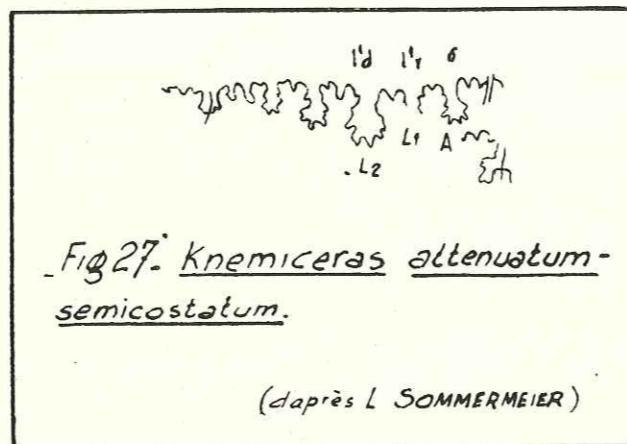 l'd l'v 6
L1 A
. L2
_Fig 27: Knemiceras attenuatum-
semicostatum.
(daprès L SOMMERMEIER)